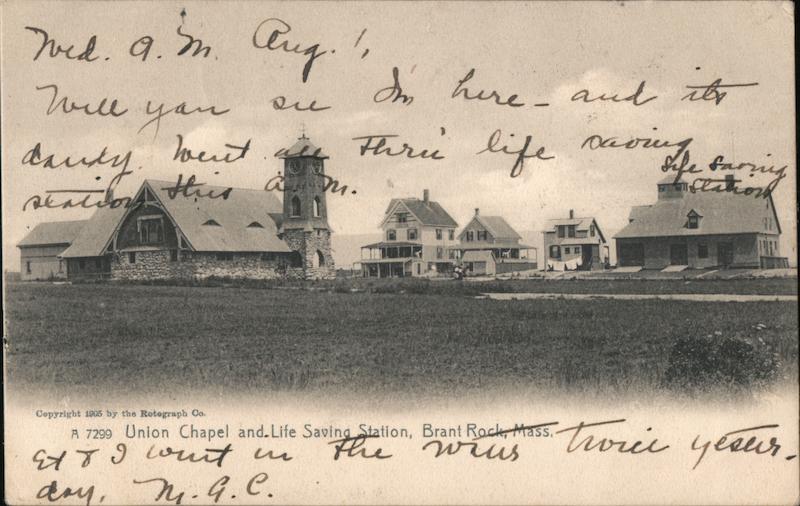 Wed. A. M. Aug. 1,
Well you see I'm here - and it's
dandy. Went all thru' life saving
station this A. M.
Life Saving
Station
Copyright 1905 by the Rotograph Co.
A 7299 Union Chapel and Life Saving Station, Brant Rock, Mass.
& I went in the twice yester-
day. M. G. C.